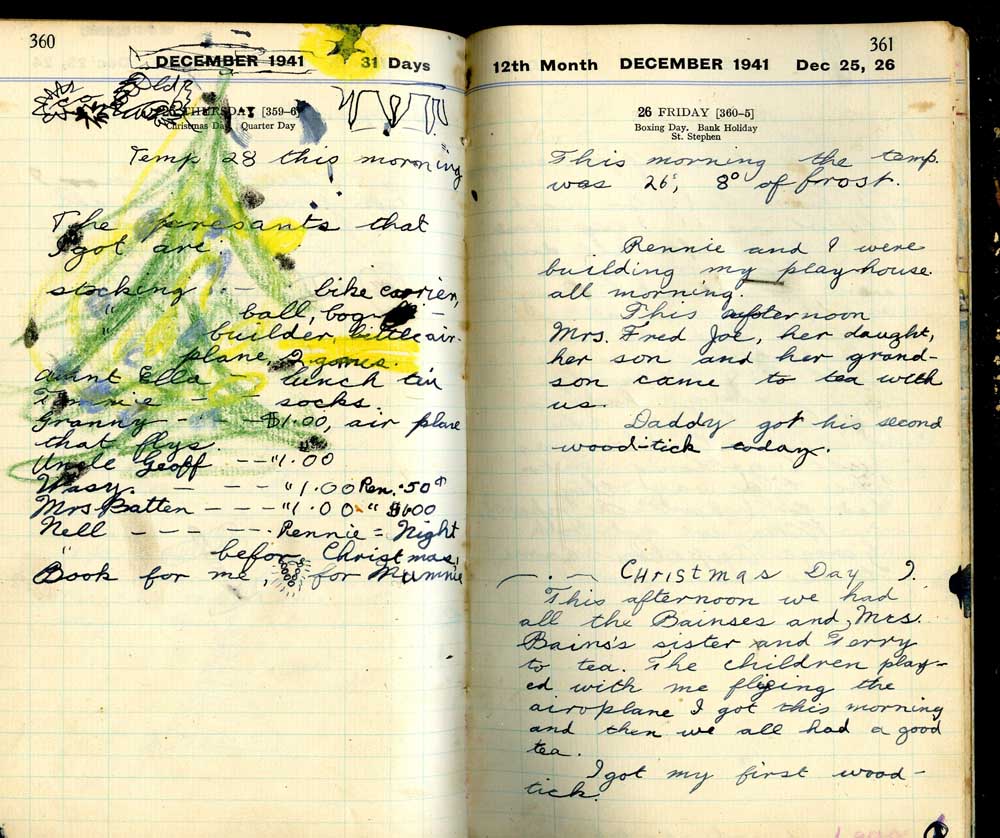 360
DECEMBER 1941 31 Days
25 THURSDAY [359-6]
Christmas Day. Quarter Day
Temp 28 this morning
The presants that
I got are:
stocking - bike carrier,
" ball,
builder, little air-
plane, 2 games.
Aunt Ella - lunch tin
- - socks.
Granny - - - $1.00, air plane
that flys.
Uncle Geoff - - "1.00
- - - "1.00 Ren. .50¢
Mrs. Batten - - - "1.00 "
Nell - - - - Rennie = Night
" befor Christmas,
Book for me, for Mummie
361
12th Month DECEMBER 1941 Dec 25, 26
26 FRIDAY [360-5]
Boxing Day. Bank Holiday
St. Stephen
This morning the temp.
was 26°, 8° of frost.
Rennie and I were
building my play-house
all morning.
This afternoon
Mrs. Fred Joe, her daught,
her son and her grand-
son came to tea with
us.
Daddy got his second
wood-tick today.
Christmas Day
This afternoon we had
all the Bainses and, Mrs.
Bains's sister and Terry
to tea. The children play-
ed with me flying the
airoplane I got this morning
and then we all had a good
tea.
I got my first wood-
tick.